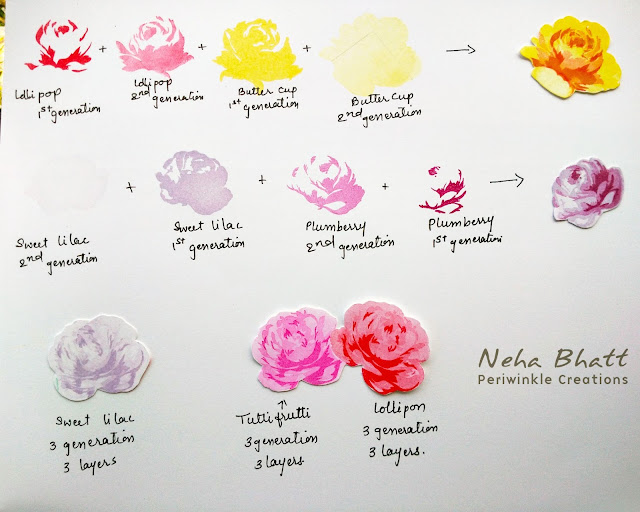 Lollipop
1st generation
+
Lollipop
2nd generation
+
Butter Cup
1st generation
+
Butter Cup
2nd generation
→
Sweet lilac
2nd generation
+
Sweet lilac
1st generation
+
Plumberry
2nd generation
+
Plumberry
1st generation
→
Sweet lilac
3 generation
3 layers
↑
Tutti frutti
3 generation
3 layers
Lollipop
3 generation
3 layers.
Neha Bhatt
Periwinkle Creations